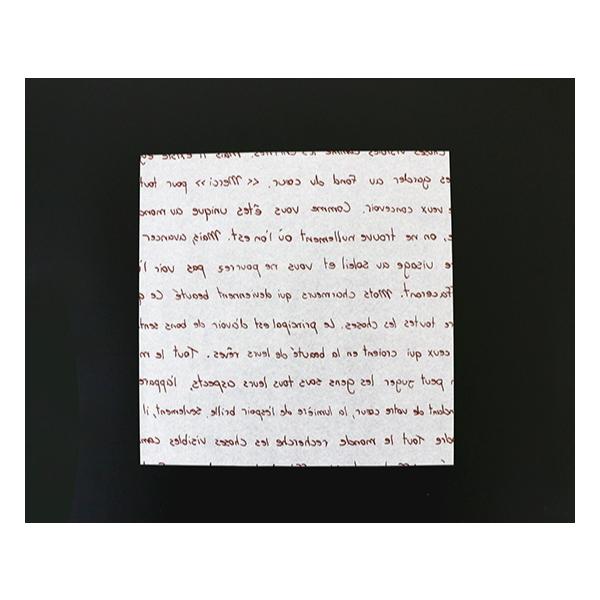 choses visibles comme les chiffres. Mais il existe
es garder au fond du cœur. << Merci >> pour tout
e veux concevoir. Comme vous êtes unique au mond
e, on ne trouve nullement où l'on est. Mais, avancer
re visage au soleil et vous ne pourrez pas voir l'
ffaceront. Mots charmeurs qui deviennent beauté Ce q
re toutes les choses. Le principal est d'avoir de bons sent
ceux qui croient en la beauté de leurs rêves. Tout le m
n peut juger les gens sous tous leurs aspects, l'appare
endant de votre cœur, la lumière de l'espoir brille. seulement, il
dre Tout le monde recherche les choses visibles com